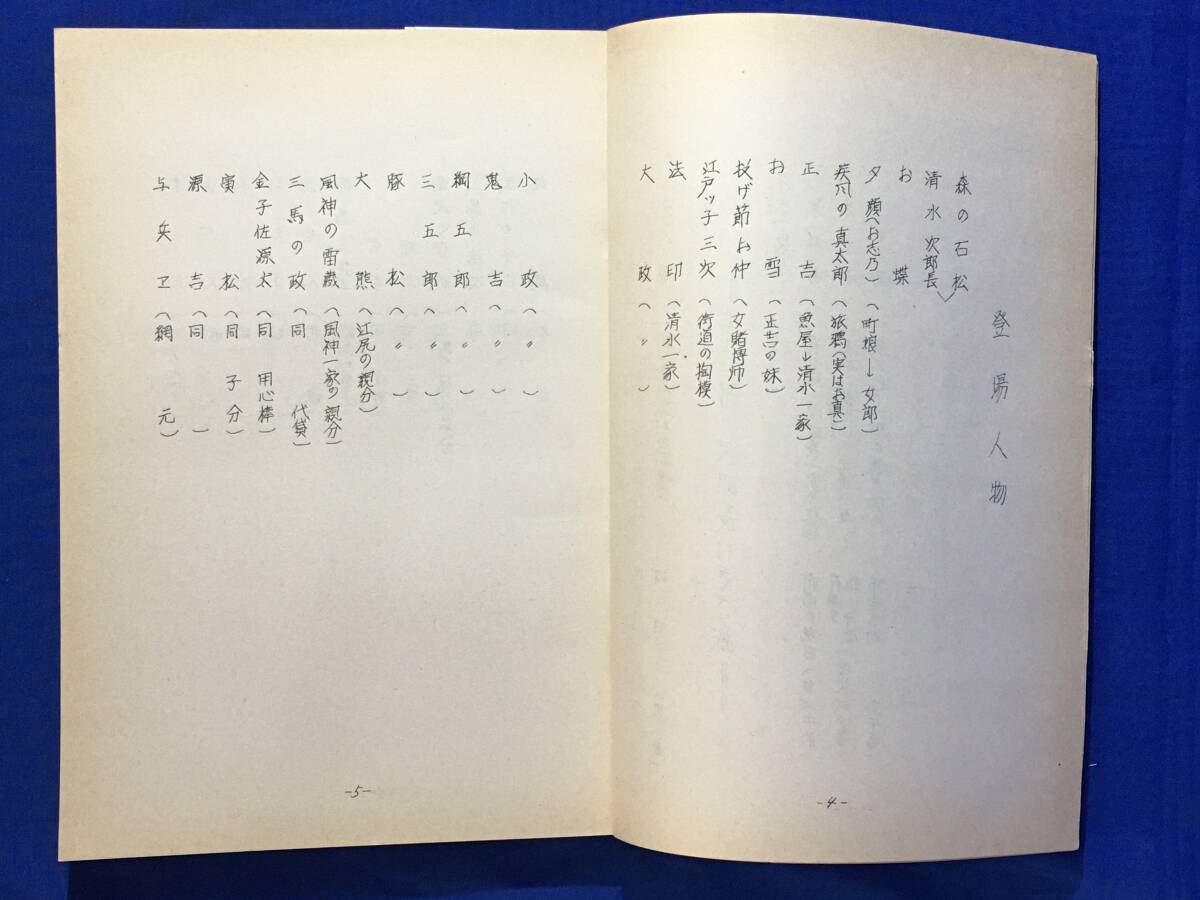 登場人物
森の石松
清水次郎長
お蝶
夕顔(お志乃)(町娘→女郎)
疾風の真太郎(旅鴉(実はお真)
正吉(魚屋→清水一家)
お雪(正吉の妹)
投げ節お仲(女賭博師)
江戸ッ子三次(街道の掏模)
法印(清水一家)
大政(〃)
-4-
小政(〃)
鬼吉(〃)
綱五郎(〃)
三五郎(〃)
豚松(〃)
大熊(江尻の親分)
風神の雷蔵(風神一家の親分)
三馬の政(同 代貸)
金子佐源太(同 用心棒)
寅松(同 子分)
源吉(同 )
与兵ヱ(網元)
-5-